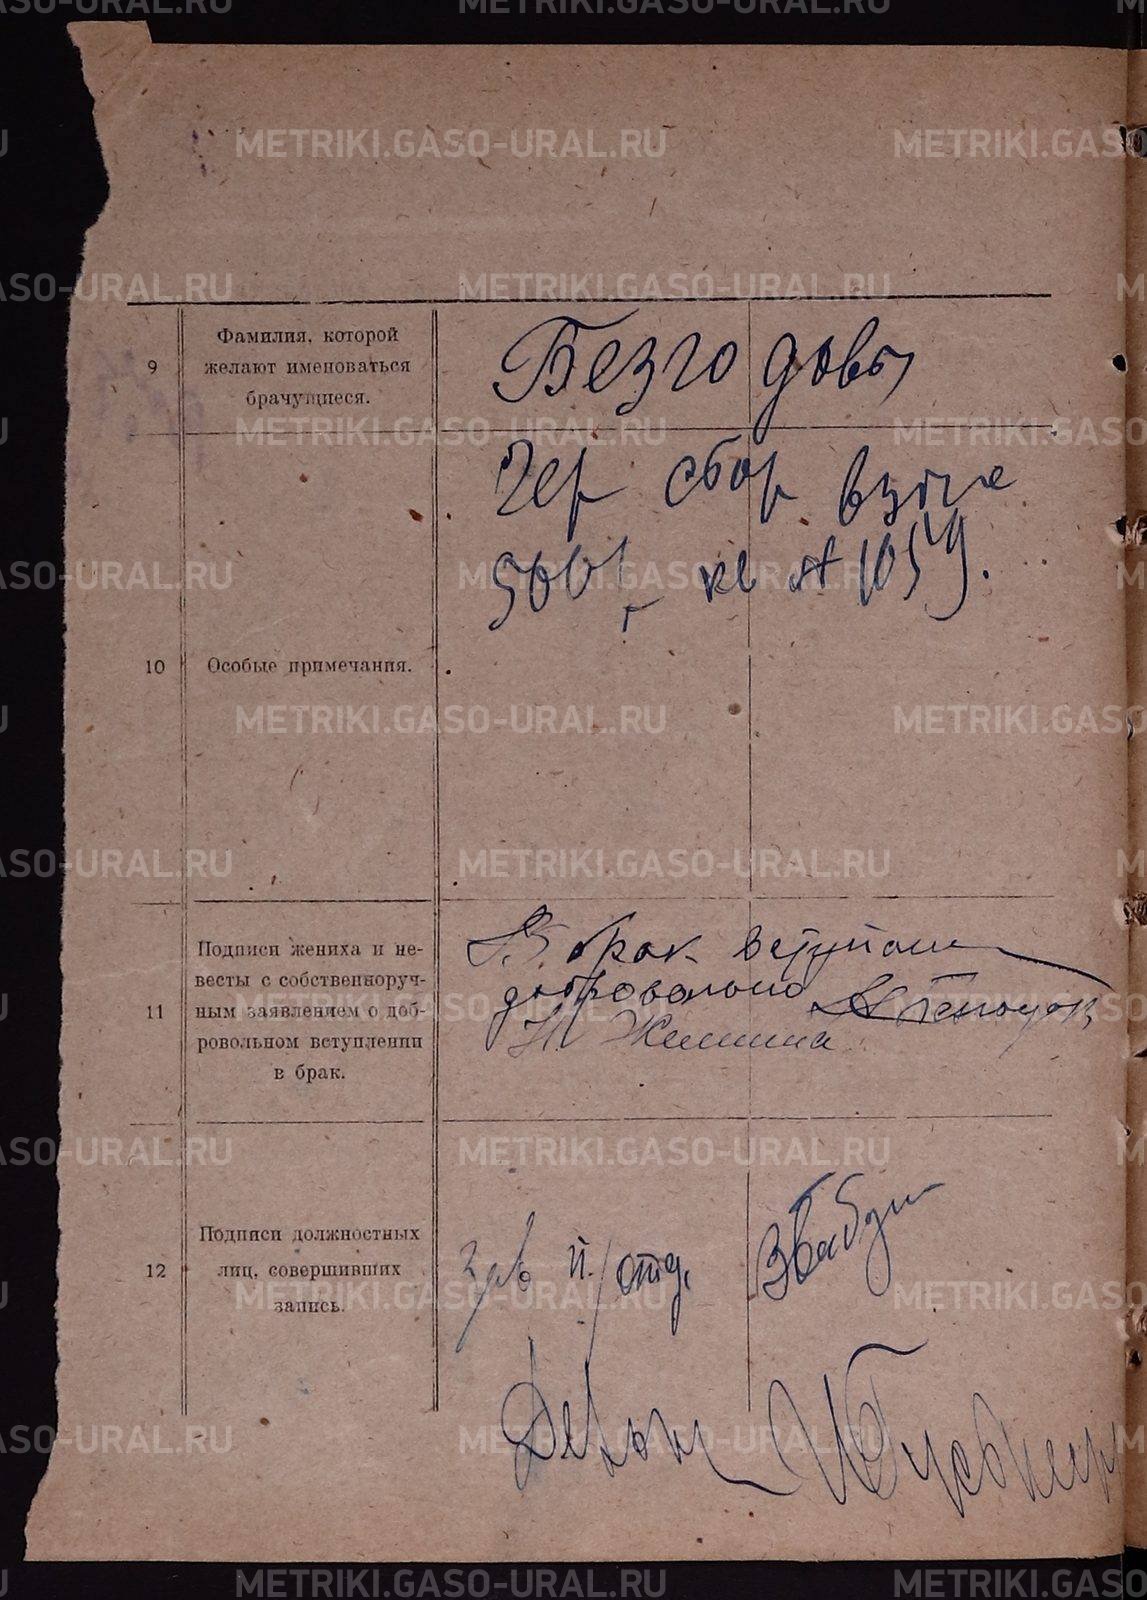 METRIKI.GASO-URAL.RU
9
Фамилия, которой
желают именоваться
брачущиеся.
Безгодовы
10
Особые примечания.
Гер сбор взяте
500р кв № 1059.
11
Подписи жениха и не-
весты с собственноруч-
ным заявлением о доб-
ровольном вступлении
в брак.
В брак вступаем
добровольно
Н. Желнина
12
Подписи должностных
лиц, совершивших
запись.
Зав п/отд.
Делопр